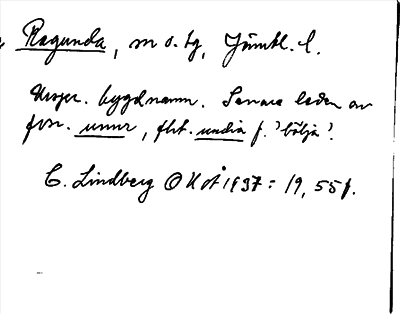 Ragunda, sn o. tg, Jämtl. l.
Urspr. bygdnamn. Senare leden av
fvn. unnr, flt. undia f. 'bölja'.
C. Lindberg OUÅ 1937: 19, 55 f.